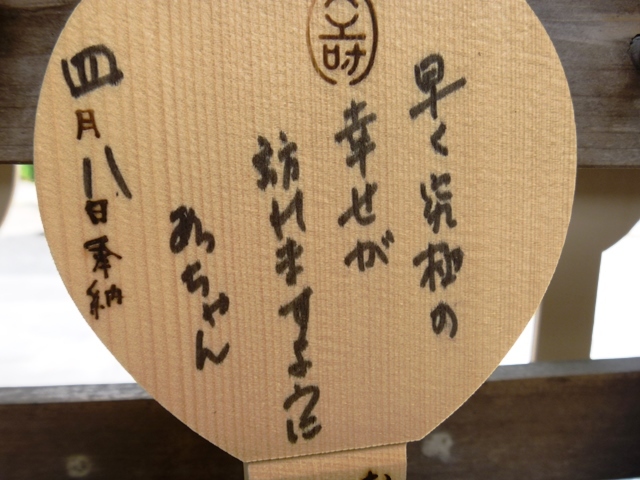 早く究極の
幸せが
訪れますように
みっちゃん
四月八日奉納